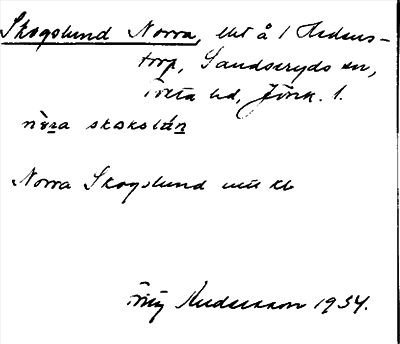 Skogslund Norra, lht å 1 Hedens-
torp, Sandseryds sn,
Tveta hd, Jönk. l.
nòra skokslán
Norra Skogslund
Andersson 1934.